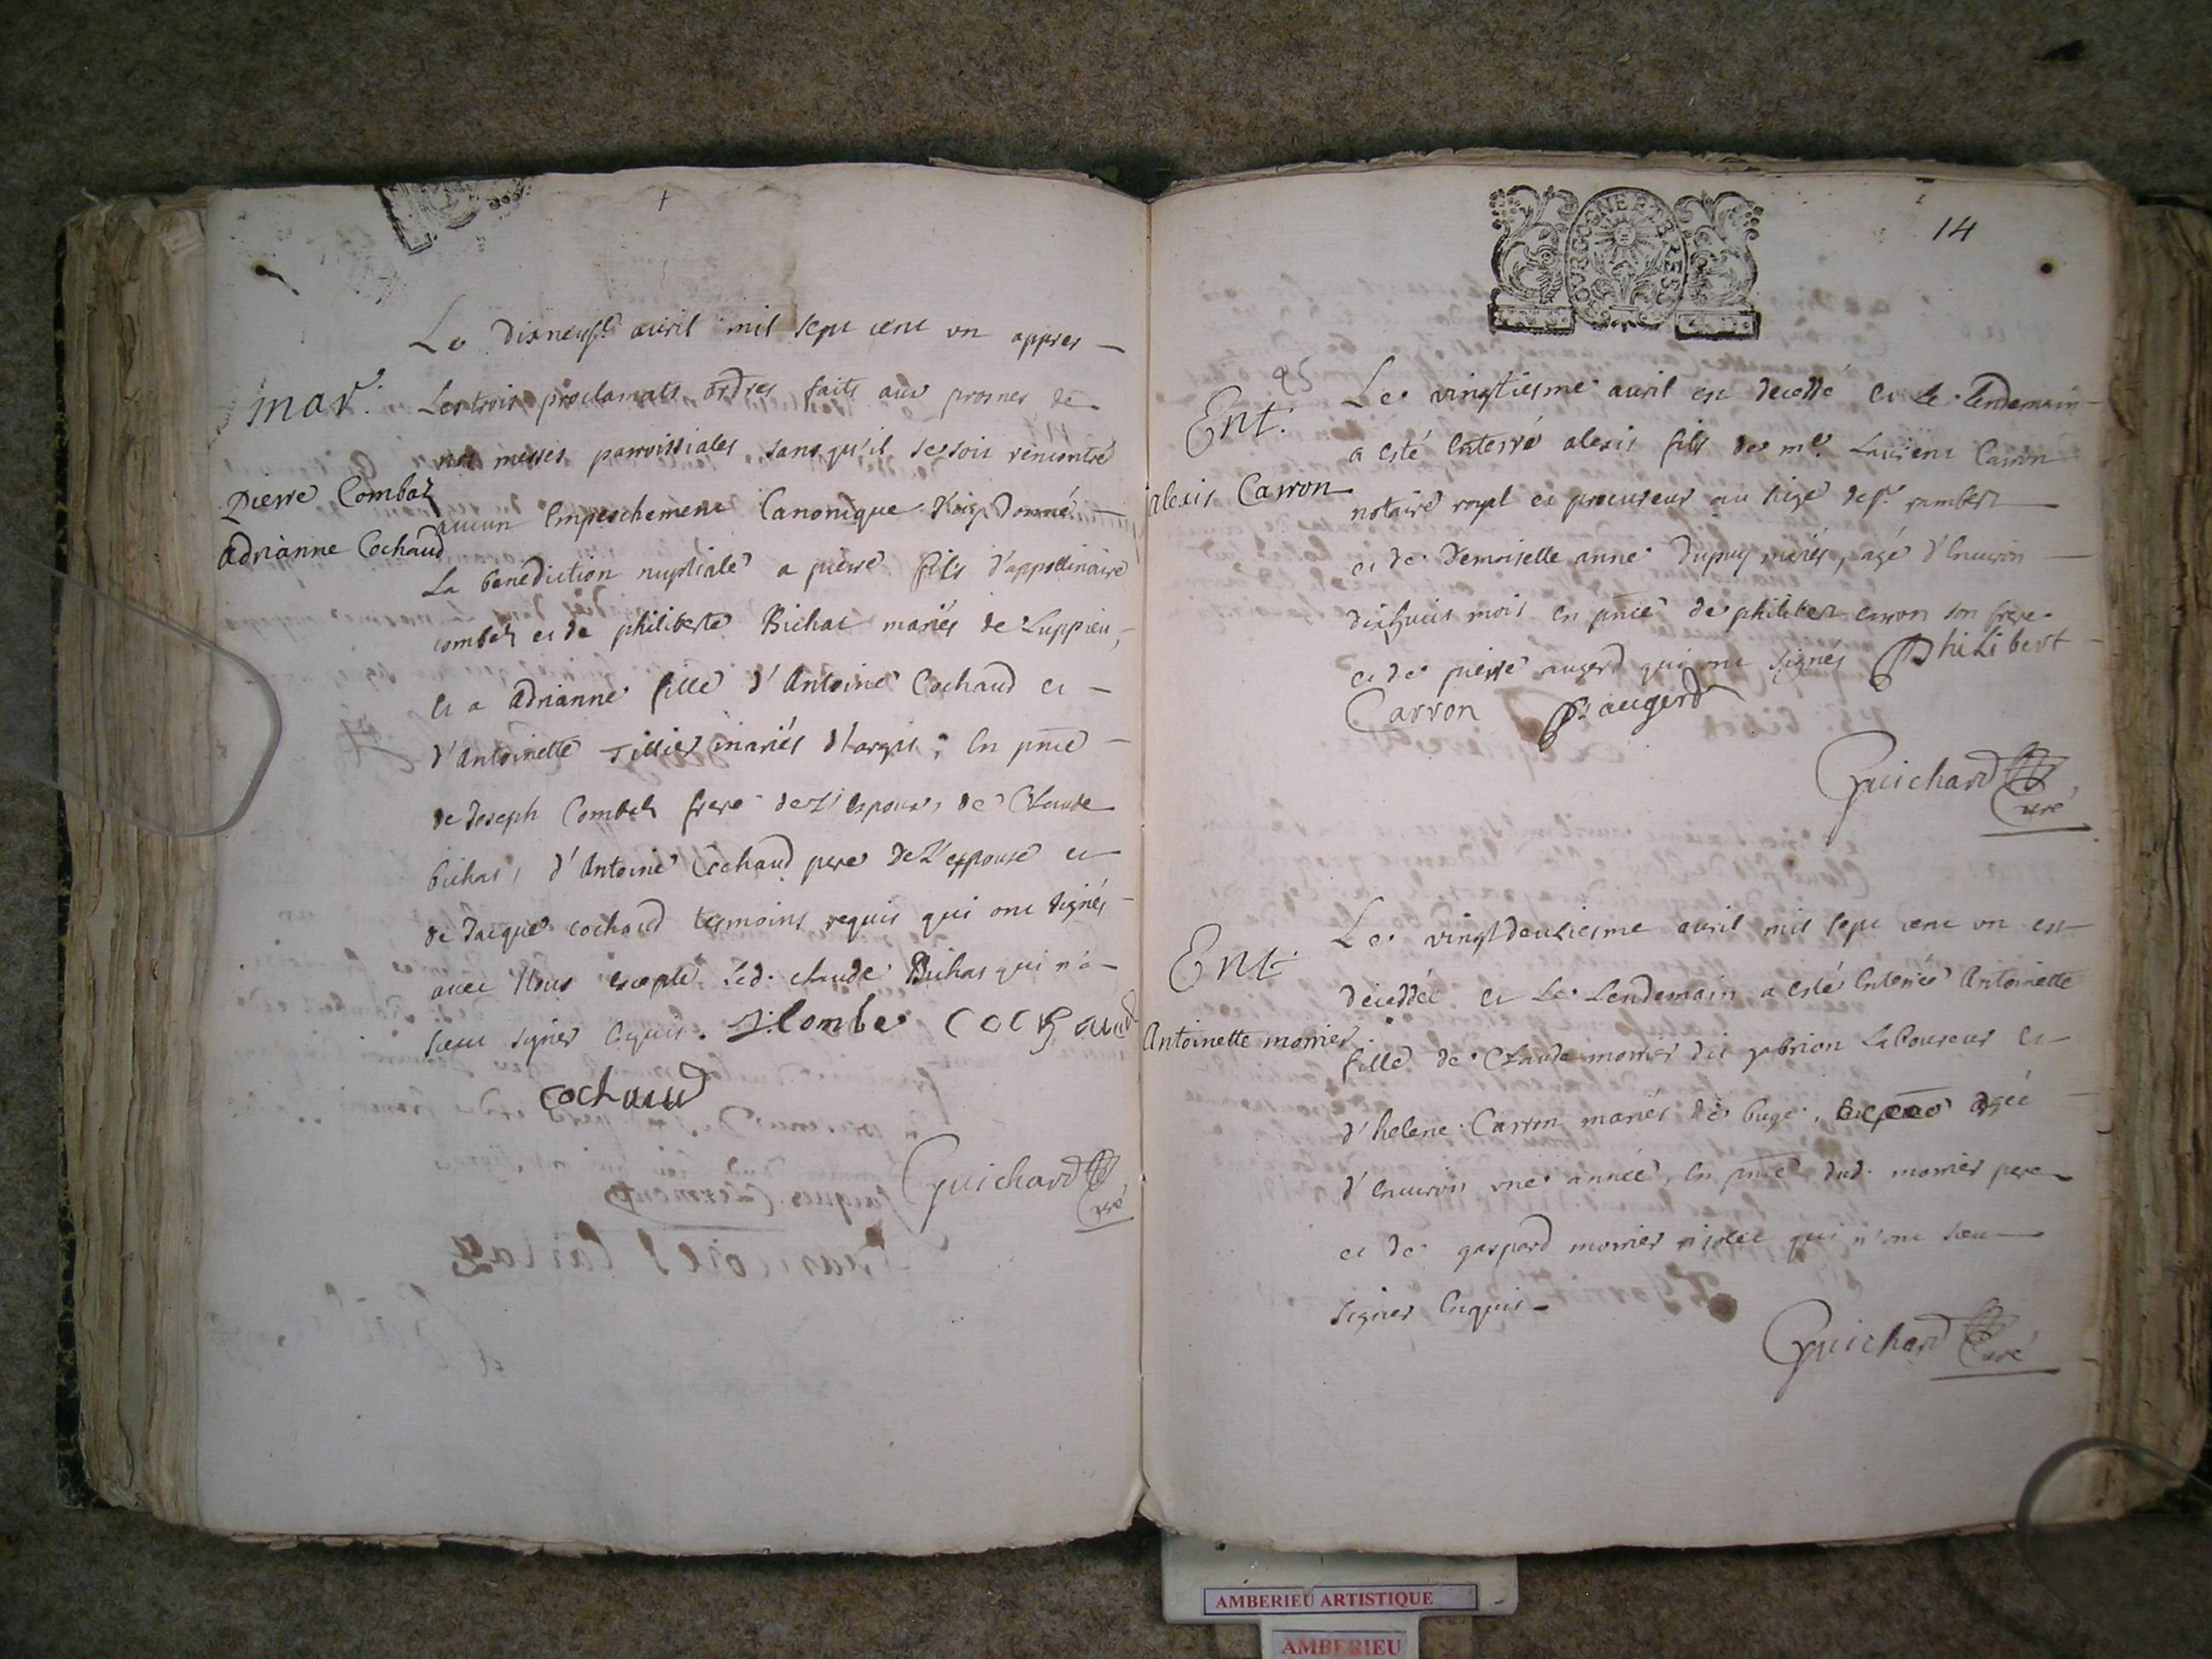 Le dixneufe avril mil sept cent un appres
mar.
Les trois proclamats ordres faits aux prosnes de
nos messes parroissiales sans qu'il se soit rencontré
Pierre Combaz
aucun Empeschement Canonique donné
Adrianne Cochaud
La benediction nuptiale a pierre fils d'appollinaire
combet et de philiberte Bichat mariés de Luppieu,
et a Adrianne fille d'Antoine Cochaud et
d'Antoinette Tillier mariés d'argis; En pnce
de Joseph Combet frere de L'Espoux, de Claude
bichat, d'Antoine Cochaud pere de L'espouse et
de Jacque cochaud tesmoins requis qui ont signés
avec Nous excepté Led. claude Bichat qui n'a
sceu signer Enquis. J. Combe Cochaud
cochaud
Guichard Curé
14
BURGOGNE ET BRESSE
95
Ent.
Le vingtiesme avril est decedé et Le Lendemain
a esté Enterré alexis fils de me. Laurent Carron
Alexis Carron
notaire royal et procureur au siege de st. rambert
et de Demoiselle anne Dupuy mariés, agé d'Environ
dixhuit mois En pnce de philibert carron son frere
et de pierre augerd qui ont signés Philibert
Carron P. augerd
Guichard Curé
Ent.
Le vingtdeuxiesme avril mil sept cent un est
decedée et Le Lendemain a esté Enterrée Antoinette
Antoinette monier
fille de Claude monier dit gabrion Laboureur et
d'helene Carron mariés de buge, agée
d'Environ une année, En pnce dud. monier pere
et de gaspard monier qui n'ont sceu
signer Enquis
Guichard Curé
AMBERIEU ARTISTIQUE
AMBERIEU